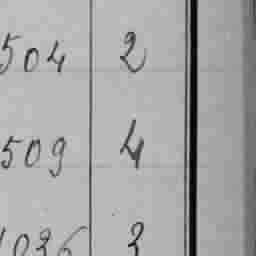 504 2
509 4
1036 3